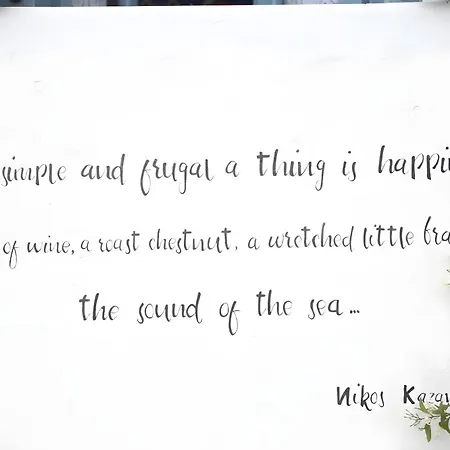 simple and frugal a thing is happi
of wine, a roast chestnut, a wretched little bra
the sound of the sea...
Nikos Kazan